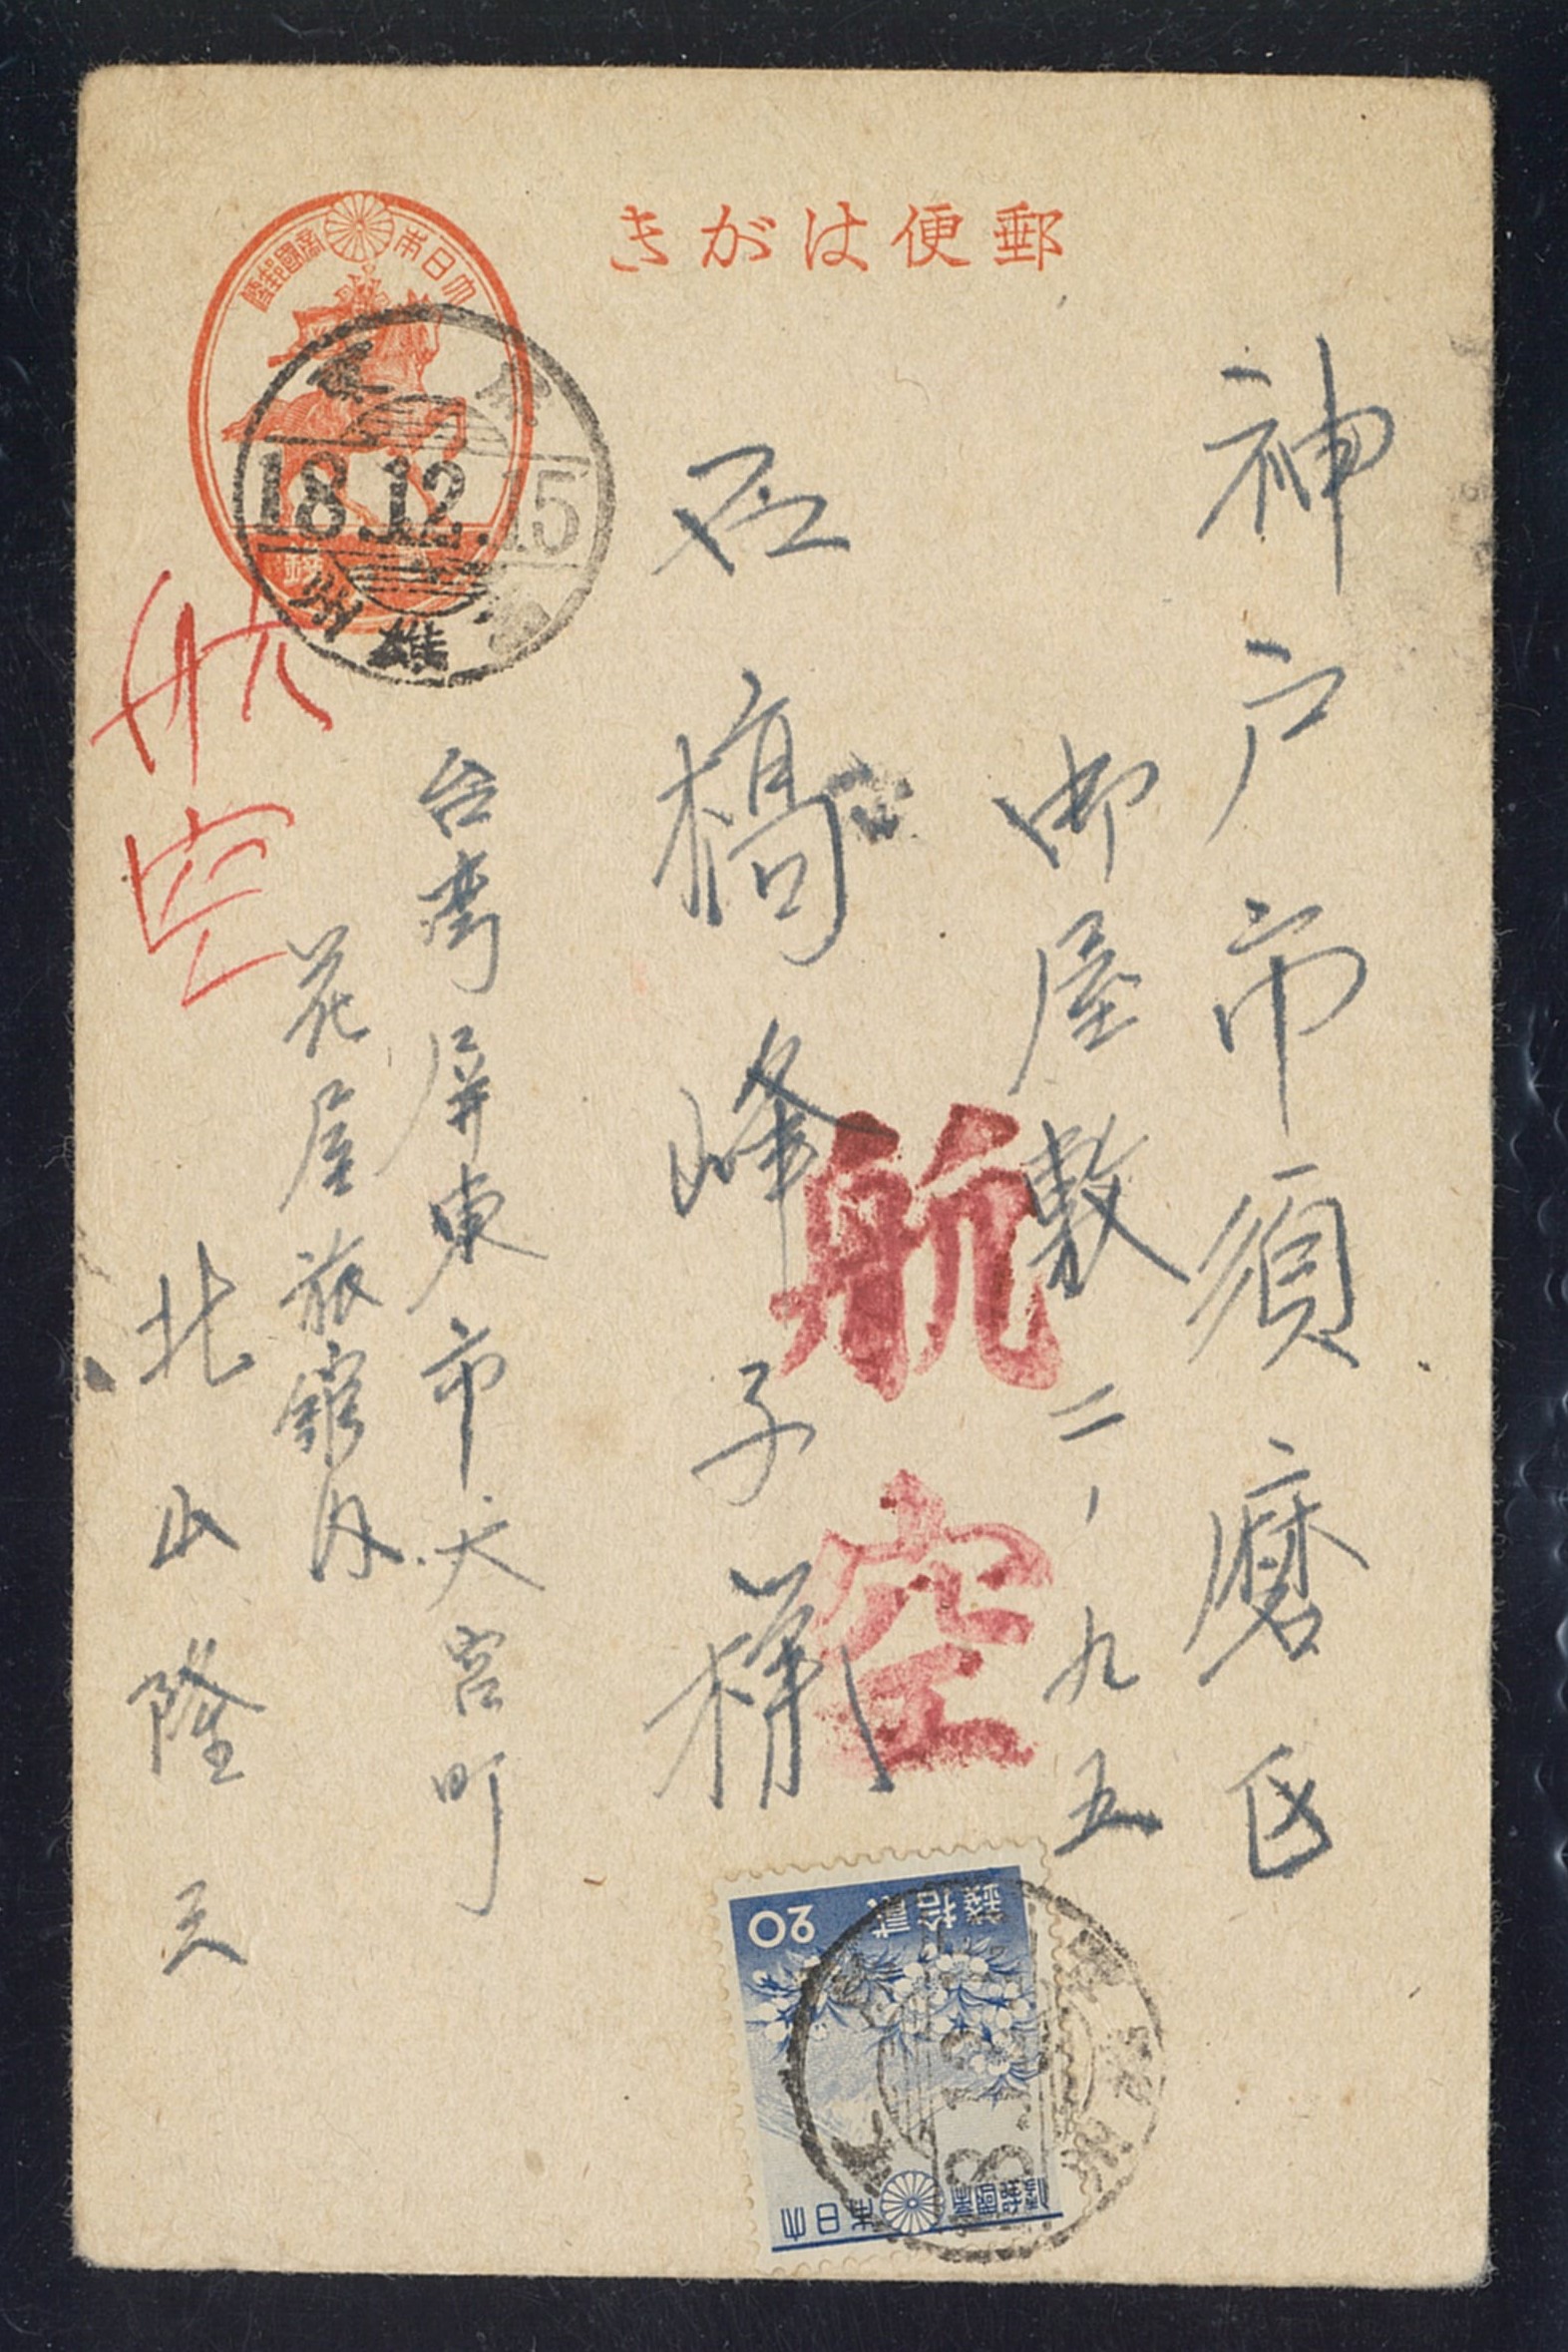 郵便はがき
大日本帝國郵便
18.12.15
高雄
神戸市須磨区
御屋敷二、九五
石橋峰子様
航空
台湾屏東市大宮町
花屋旅館内
北山隆三
航空
20
貳拾錢
大日本帝國郵便